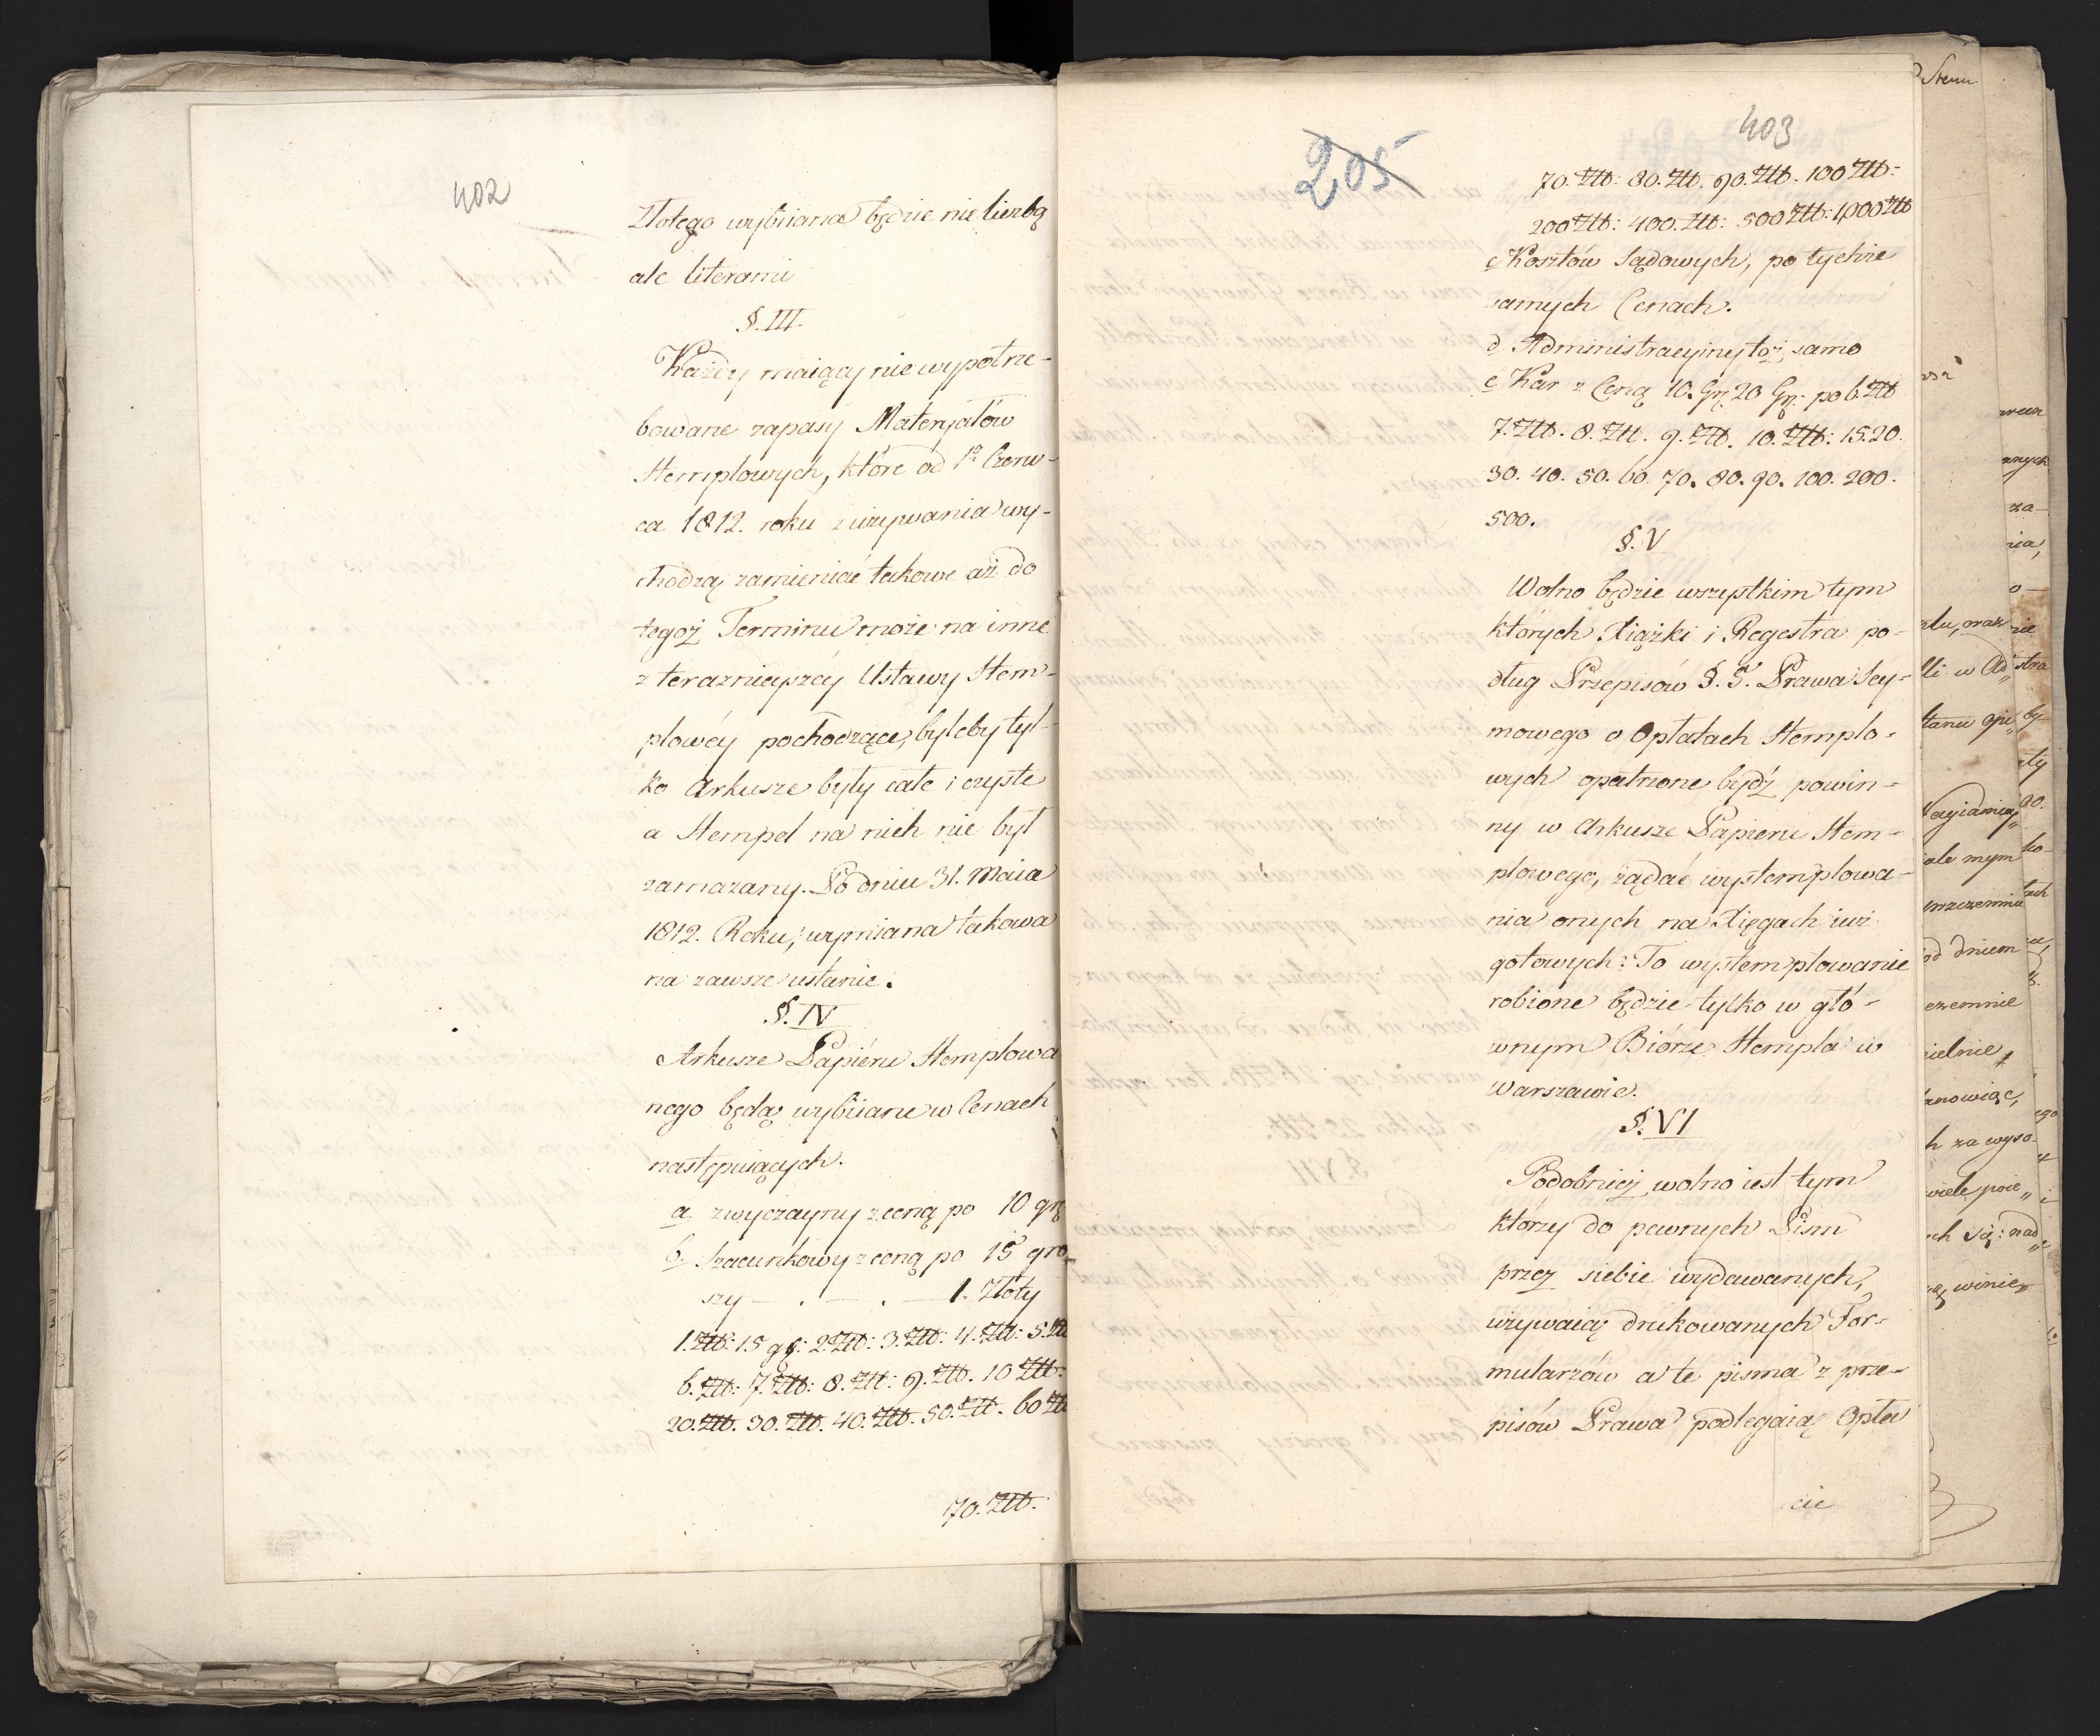 402
Złotego wybiiana będzie nie liczbą
ale literami
§. III.
Każdy maiący nie wypotrze-
bowane zapasy Materyałów
Stemplowych, które od 1º Czerw-
ca 1812. roku z używania wy-
chodzą zamieniać takowe aż do
tegoż Terminu może na inne
z teraznieyszéy Ustawy Stem-
plowéy pochodzące, byleby tyl-
ko Arkusze były całe i czyste
a Stempel na nich nie był
zamazany. Po dniu 31. Maia
1812. Roku, wymiana takowa
na zawsze ustanie.
§. IV
Arkusze Papiéru Stemplowa
nego będą wybiiane w Cenach
następuiących.
a zwyczayny z ceną po 10 grz
b. Szacunkowy z ceną po 15 gro
szy — . — . — 1. Złoty
1. Złt: 15 gg: 2. Złt: 3. Złt: 4. Złt: 5. Złt
6. Złt: 7. Złt: 8. Złt: 9. Złt. 10 Złt:
20. Złt. 30. Złt. 40. Złt. 50. Złt. 60 Złt
70. Złt.
205
403
70. Złt: 80. Złt. 90. Złt. 100 Złt:
200 Złt: 400. Złt: 500 Złt: 1,000 Złt
c Kosztów Sądowych, po tychże
samych Cenach.
d Administracyiny toż samo
e Kar z Ceną 10. Grz 20 Grz. po 6. Złt
7. Złt. 8. Złt. 9. Złt. 10. Złt: 15. 20.
30. 40. 50. 60. 70. 80. 90. 100. 200.
500.
§. V
Wolno będzie wszystkim tym
których Xiążki i Regestra po-
dług Przepisów §. 5. Prawa Sey-
mowego o Opłatach Stemplo-
wych opatrzone bydź powin-
ny w Arkusze Papieru Stem-
plowego, żądać wystemplowa-
nia onych na Xięgach iuż
gotowych: To wystemplowanie
robione będzie tylko w głó-
wnym Biórze Stempla w
Warszawie.
§. VI
Podobnież wolno iest tym
którzy do pewnych Pism
przez siebie wydawanych,
używaią drukowanych For-
mularzów a te pisma z prze-
pisów Prawa podlegaią Opła
cie